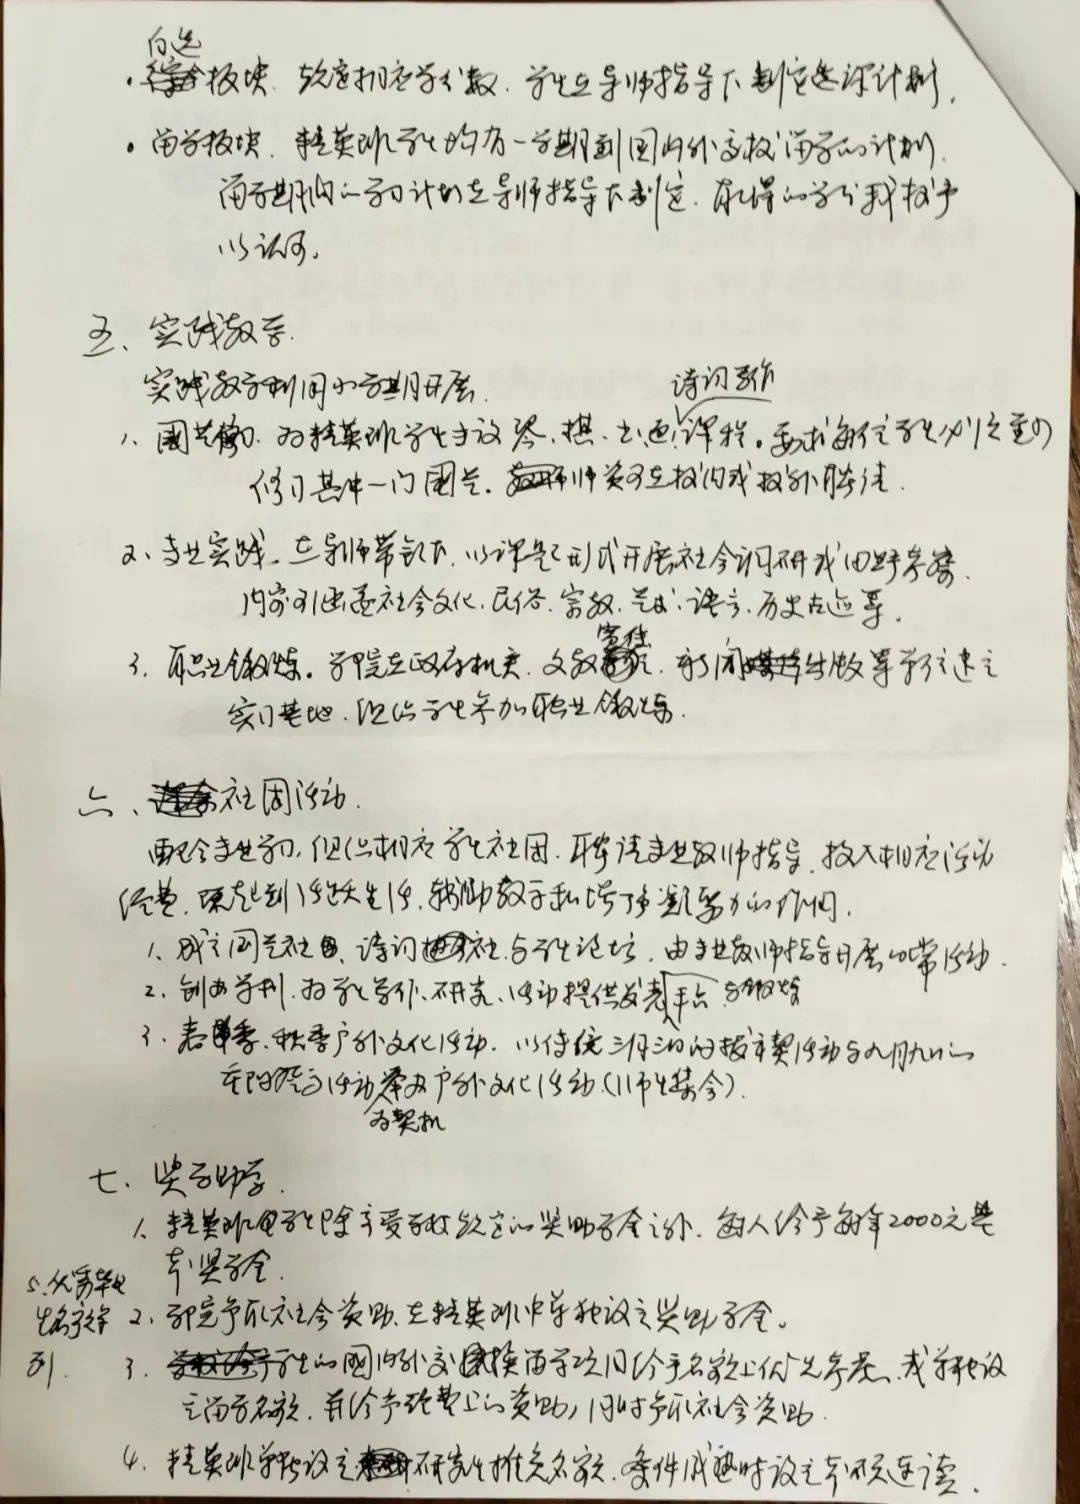 自选
·板块. 规定相应学分数. 学生在导师指导下制定选课计划.
·留学板块. 精英班学生均有一学期到国内外高校留学的计划.
留学期间的学习计划在导师指导下制定. 取得的学分我校予
以认可.
五、实践教学.
实践教学利用小学期开展.
诗词写作
1、国艺修习. 为精英班学生开设琴、棋、书、画、课程。要求每位学生必须至少
修习其中一门国艺. 师资可在校内或校外聘请.
2、专业实践. 在导师带领下, 以课题形式开展社会调研或田野考察.
内容可涉及社会文化、民俗、宗教、艺术、语言、历史古迹等.
3、职业锻炼。学院在政府机关、文教宣传、新闻出版等单位建立
实习基地, 组织学生参加职业锻炼.
六、社团活动.
配合专业学习, 组织相应学生社团. 聘请专业教师指导, 投入相应活动
经费, 起到活跃生活, 辅助教学和培养能力的作用.
1、成立国艺社、诗词社与学生论坛, 由专业教师指导开展日常活动.
2、创办学刊, 为学生写作、研究、活动提供发表平台与锻炼
3、春季、秋季户外文化活动. 以传统三月三的祓禊活动与九月九的
重阳登高活动为契机举办户外文化活动(师生集会).
七、奖学助学.
1、精英班学生除享受学校规定的奖助学金之外, 每人给予每年2000元基
本奖学金.
2、学院争取社会资助, 在精英班中单独设立奖助学金。
3、学生的国内外交换留学项目给予名额上优先考虑, 或单独设
立留学名额, 并给予经费上的资助, 同时争取社会资助.
4、精英班单独设立研究生推免名额. 条件成熟时设立本硕连读.
5、优秀毕业
生名字
列.